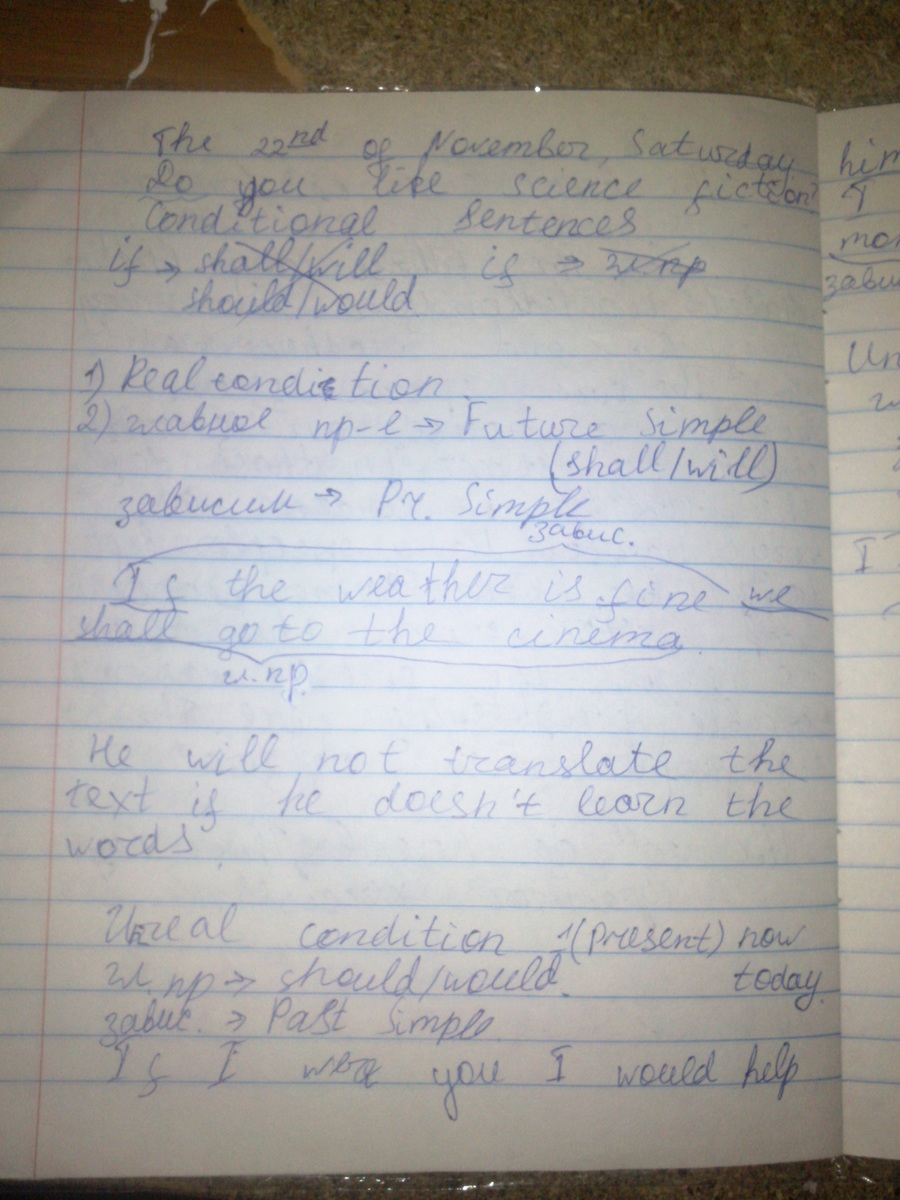 The 22nd of November, Saturday
Do you like science fiction?
Conditional Sentences
if → shall/will if → гл. пр
should/would
1) Real condition
2) главное пр-е → Future Simple
(shall/will)
зависим → Pr. Simple
завис.
If the weather is fine we
shall go to the cinema.
гл. пр.
He will not translate the
text if he doesn't learn the
words.
Unreal condition 1(present) now
гл. пр → should/would. today.
завис. → Past Simple
If I were you I would help
him
I
завис
I